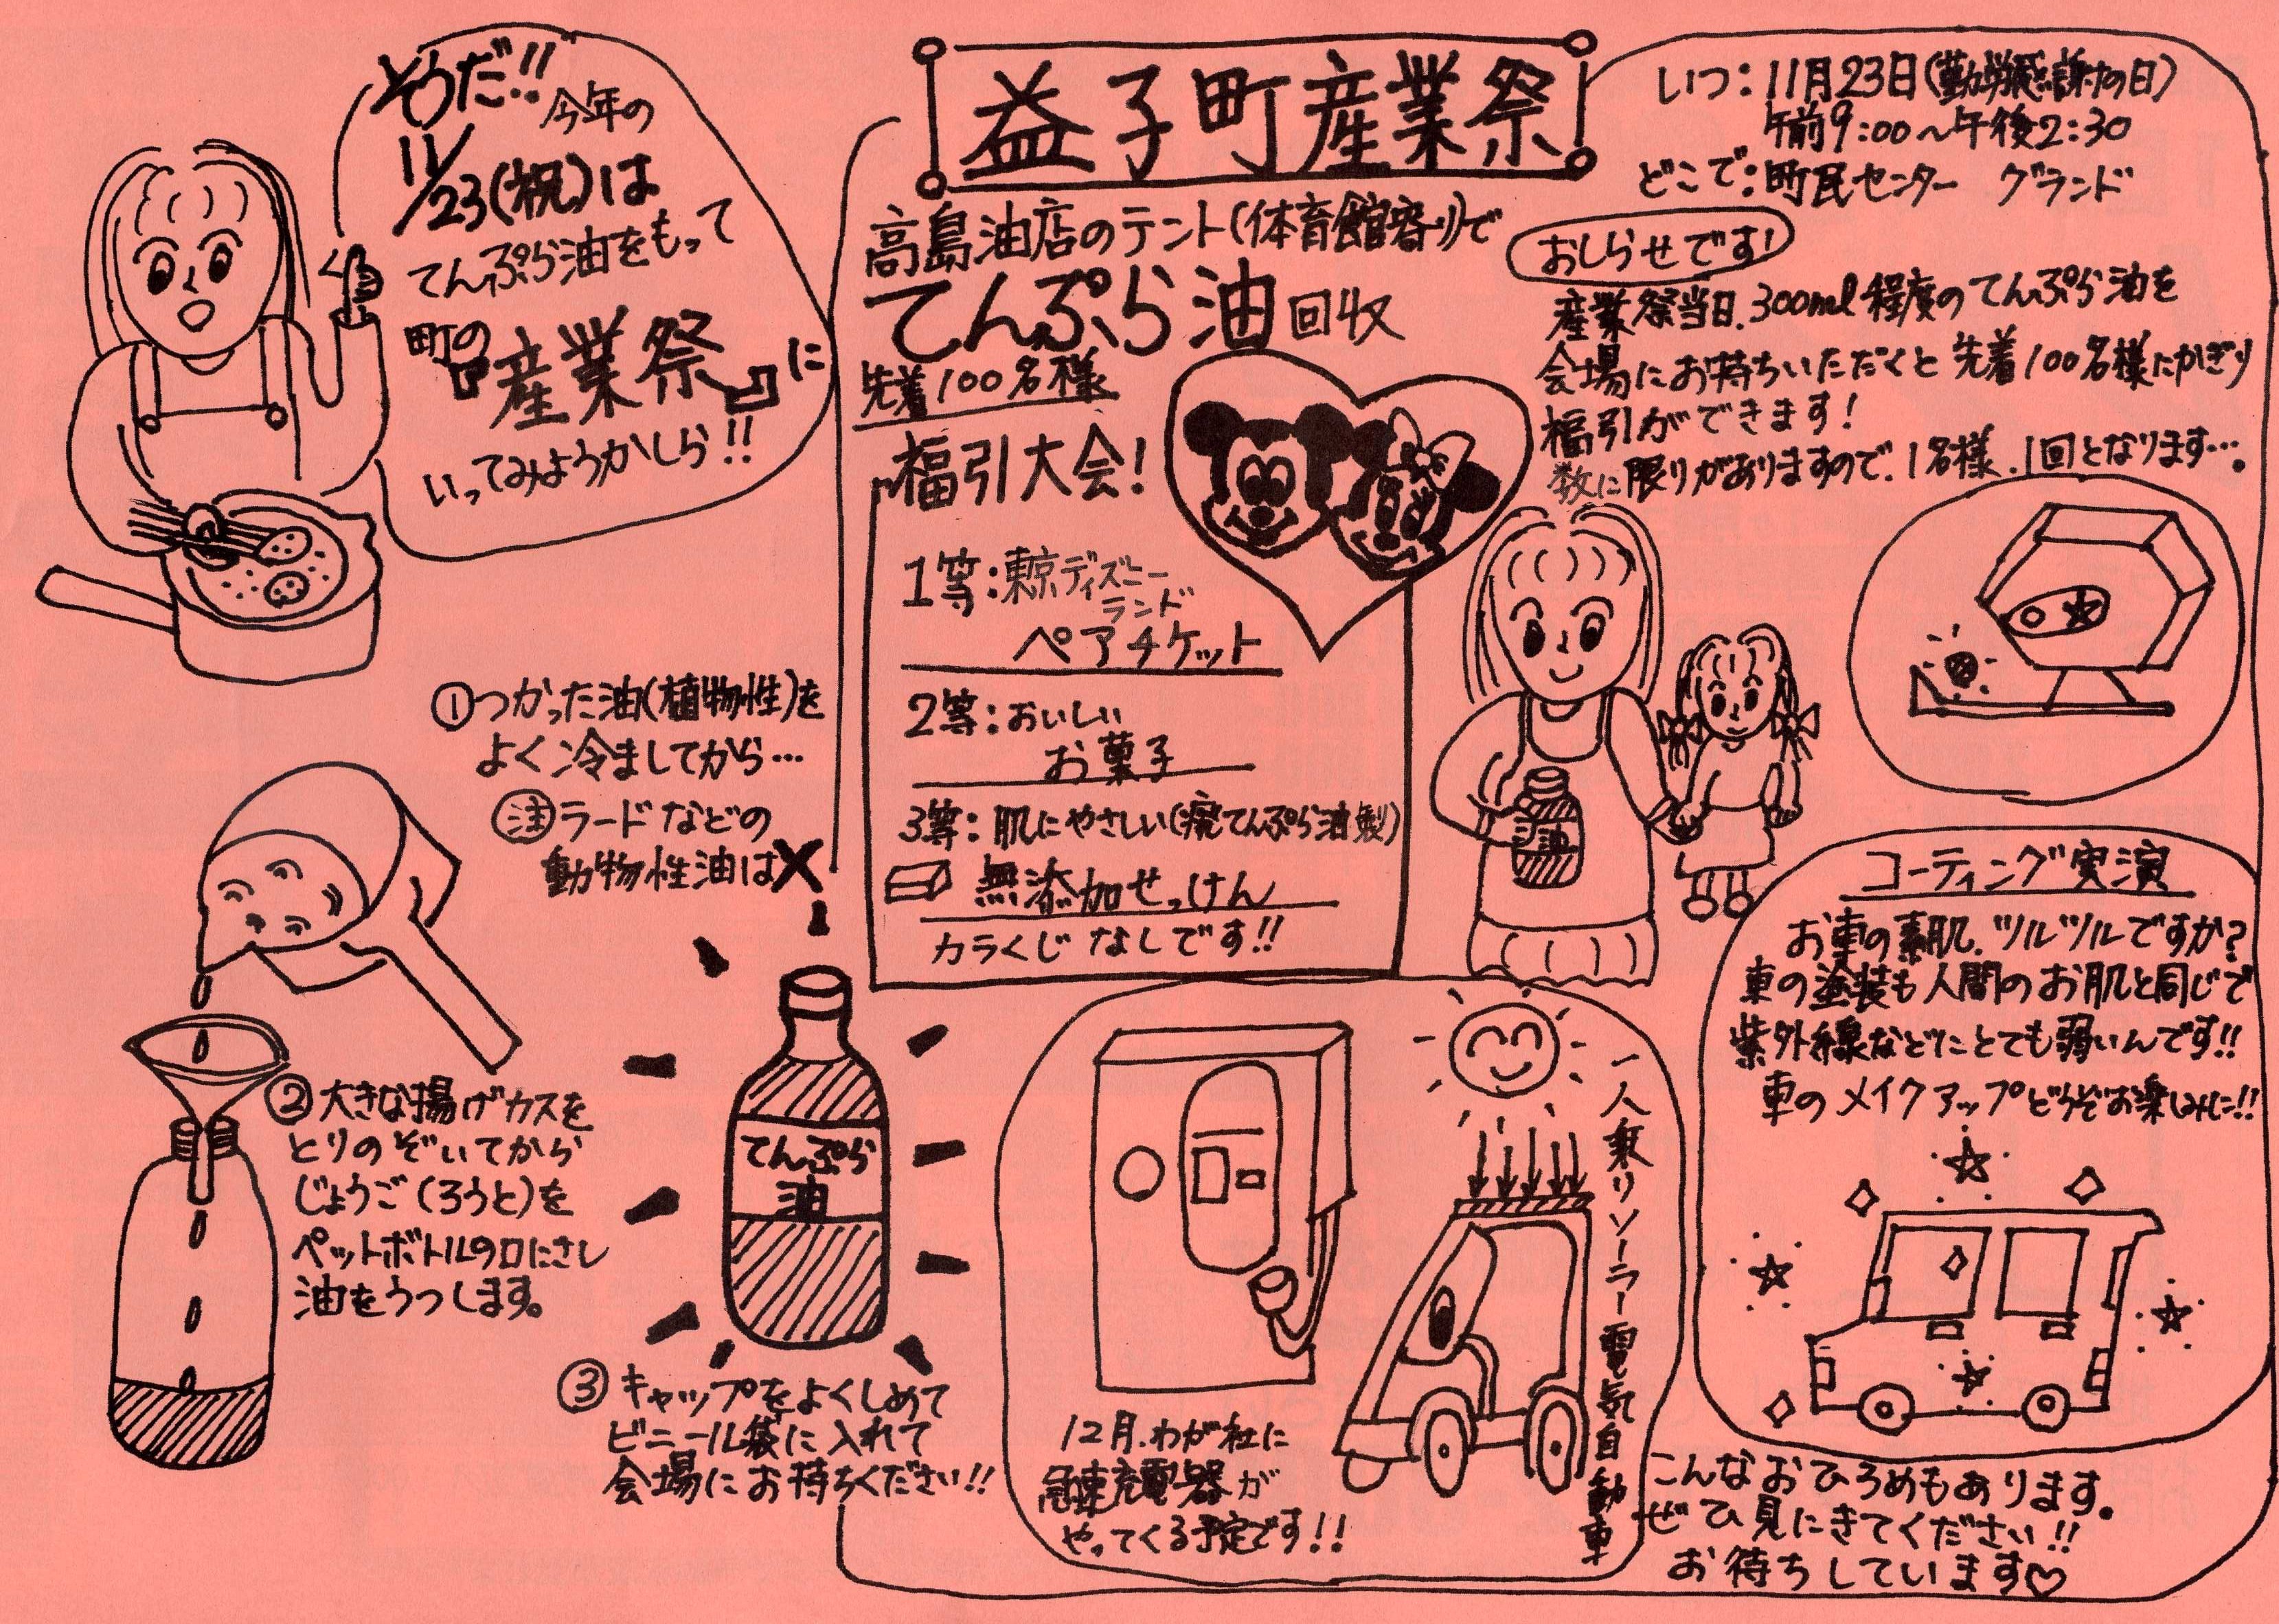 そうだ!! 今年の
11/23(祝)は
てんぷら油をもって
町の
『産業祭』に
いってみようかしら!!
①つかった油(植物性)を
よく冷ましてから…
注 ラードなどの
動物性油は×
②大きな揚げカスを
とりのぞいてから
じょうご(ろうと)を
ペットボトルの口にさし
油をうつします。
てんぷら
油
③キャップをよくしめて
ビニール袋に入れて
会場にお持ちください!!
益子町産業祭
いつ:11月23日(勤労感謝の日)
午前9:00～午後2:30
どこで:町民センター グランド
高島油店のテント(体育館寄り)で
てんぷら油回収
先着100名様
福引大会!
1等:東京ディズニー
ランド
ペアチケット
2等:おいしい
お菓子
3等:肌にやさしい(廃てんぷら油製)
無添加せっけん
カラくじなしです!!
おしらせです!
産業祭当日.300ml程度のてんぷら油を
会場にお持ちいただくと先着100名様にかぎり
福引ができます!
数に限りがありますので.1名様.1回となります…。
油
コーティング実演
お車の素肌.ツルツルですか?
車の塗装も人間のお肌と同じで
紫外線などにとても弱いんです!!
車のメイクアップどうぞお楽しみに!!
一人乗りソーラー電気自動車
12月.わが社に
急速充電器が
やってくる予定です!!
こんなおひろめもあります。
ぜひ見にきてください!!
お待ちしています♡